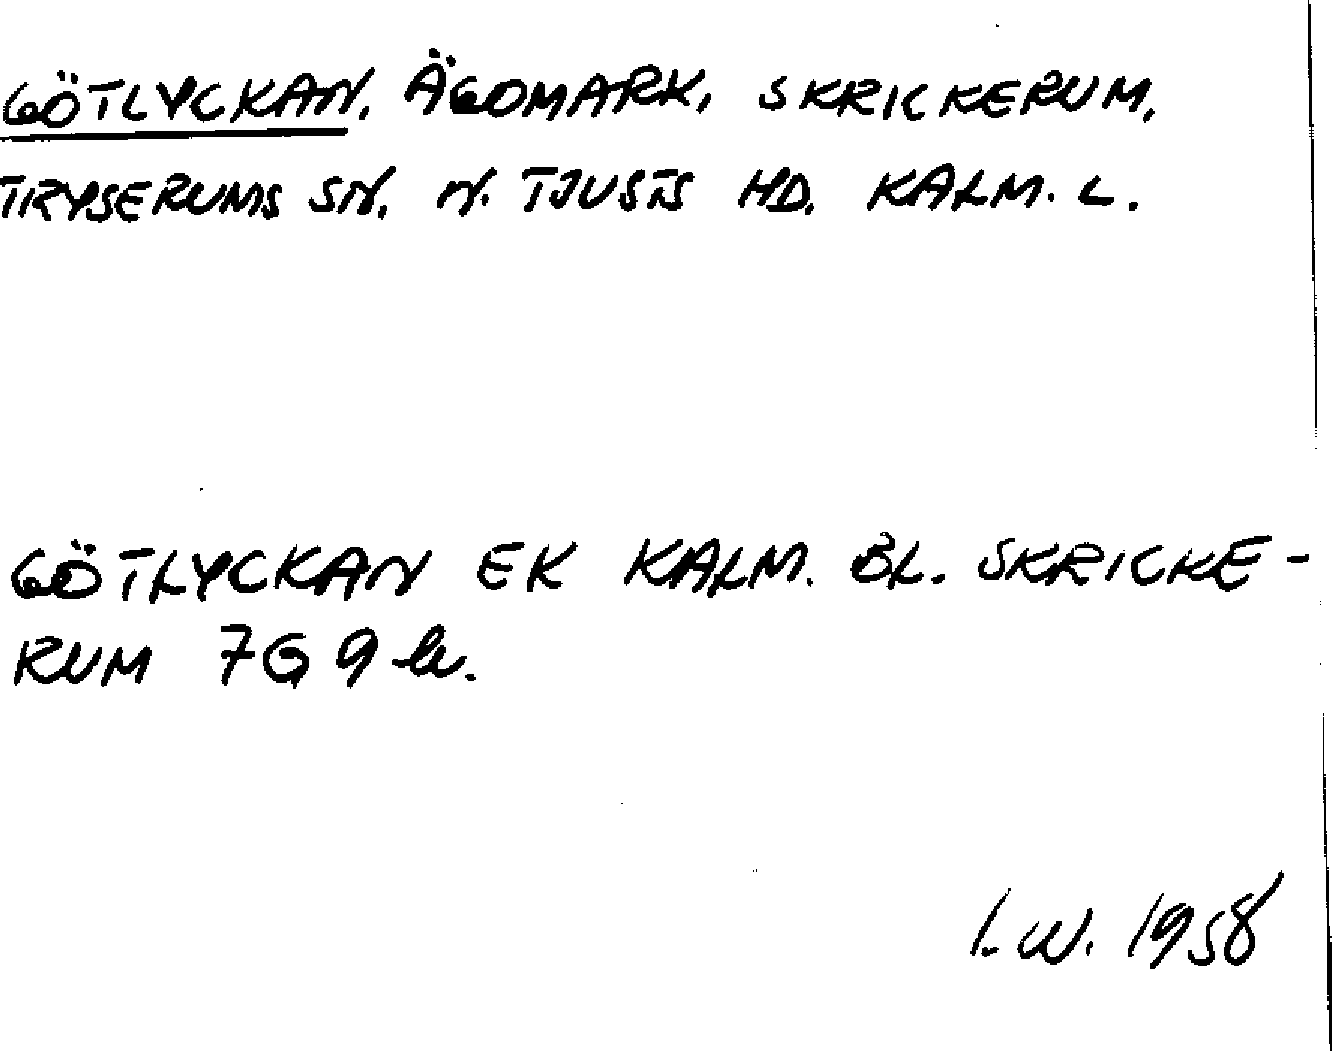 GÖTLYCKAN, ÄGOMARK, SKRICKERUM,
TRYSERUMS SN, N. TJUSTS HD, KALM. L.
GÖTLYCKAN EK KALM. BL. SKRICKE-
RUM 7G 9
I.W. 1958